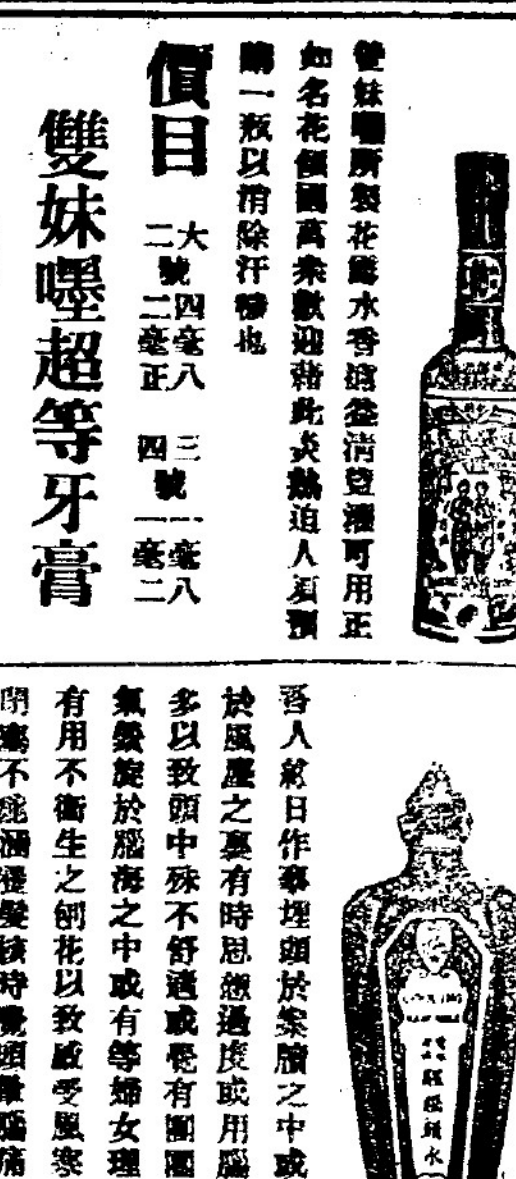 雙妹嚜所製花露水香濃益清登灑可用正
如名花傾國萬衆歡迎藉此炎熱迫人須預
購一瓶以消除汗穢也
價目
大號四毫八
二號二毫正
三號一毫八
四號一毫二
雙妹嚜超等牙膏
吾人終日作事埋頭於案牘之中或
於風塵之裏有時思想過度或用腦
多以致頭中殊不舒適或覺有團團
氣發旋於腦海之中或有等婦女理
有用不衞生之刨花以致感受風寒
閉塞不 時 頭 腦痛